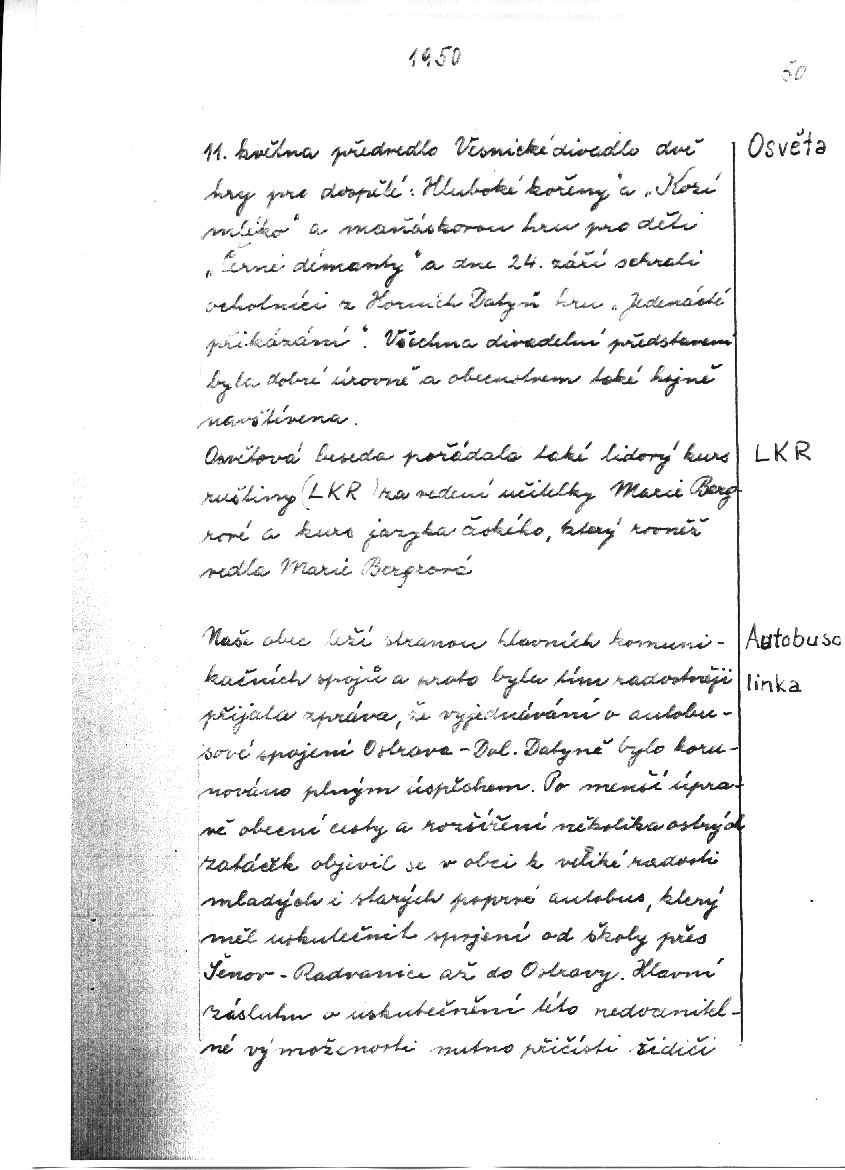 1950
50
11. května předvedlo Vesnické divadlo dvě
Osvěta
hry pro dospělé: Hluboké kořeny" a „Kozí
mléko" a maňáskovou hru pro děti
„Černé démanty" a dne 24. září sehráli
ochotníci z Horních Datyň hru „Jedenácté
přikázání". Všechna divadelní představení
byla dobré úrovně a obecenstvem také hojně
navštívena.
Osvětová beseda pořádala také lidový kurs
LKR
ruštiny (LKR) za vedení učitelky Marie Berg-
rové a kurs jazyka českého, který rovněž
vedla Marie Bergrová
Naše obec leží stranou hlavních komuni-
Autobuso
kačních spojů a proto byla tím radostněji
linka
přijata zpráva, že vyjednávání o autobu-
sové spojení Ostrava - Dol. Datyně bylo koru-
nováno plným úspěchem. Po menší úpra-
vě obecní cesty a rozšíření několika ostrých
zatáček objevil se v obci k veliké radosti
mladých i starých poprvé autobus, který
měl uskutečnit spojení od školy přes
Šenov - Radvanice až do Ostravy. Hlavní
zásluhu o uskutečnění této nedocenitel-
né vymoženosti nutno přičísti řidiči